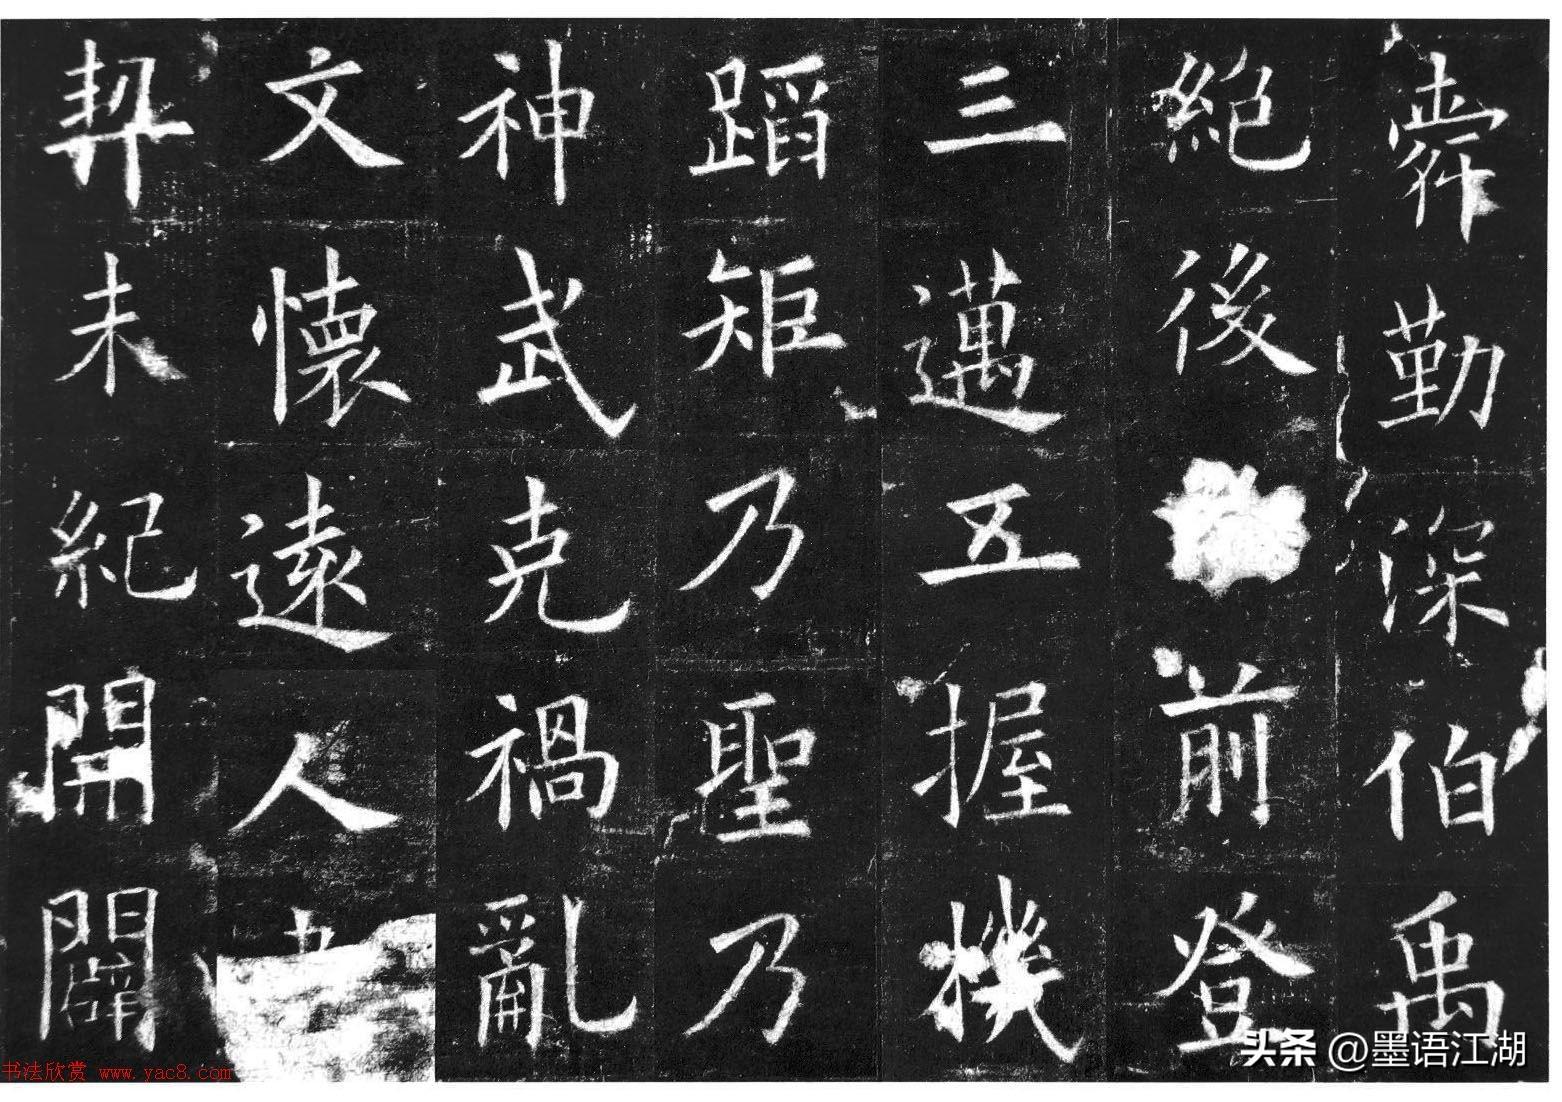 舜勤深伯禹
絶後前登
三邁五握機
蹈矩乃聖乃
神武克禍亂
文懷遠人
契未紀開闢
头条 @墨语江湖
书法欣赏 www.yac8.com